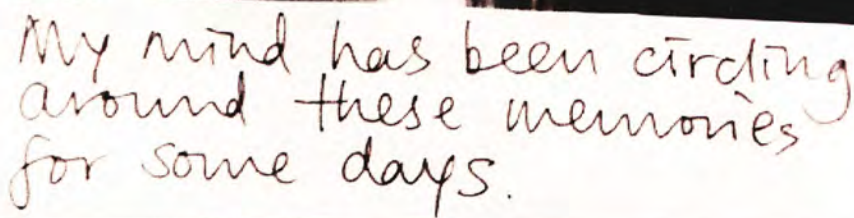 My mind has been circling
around these memories
for some days.